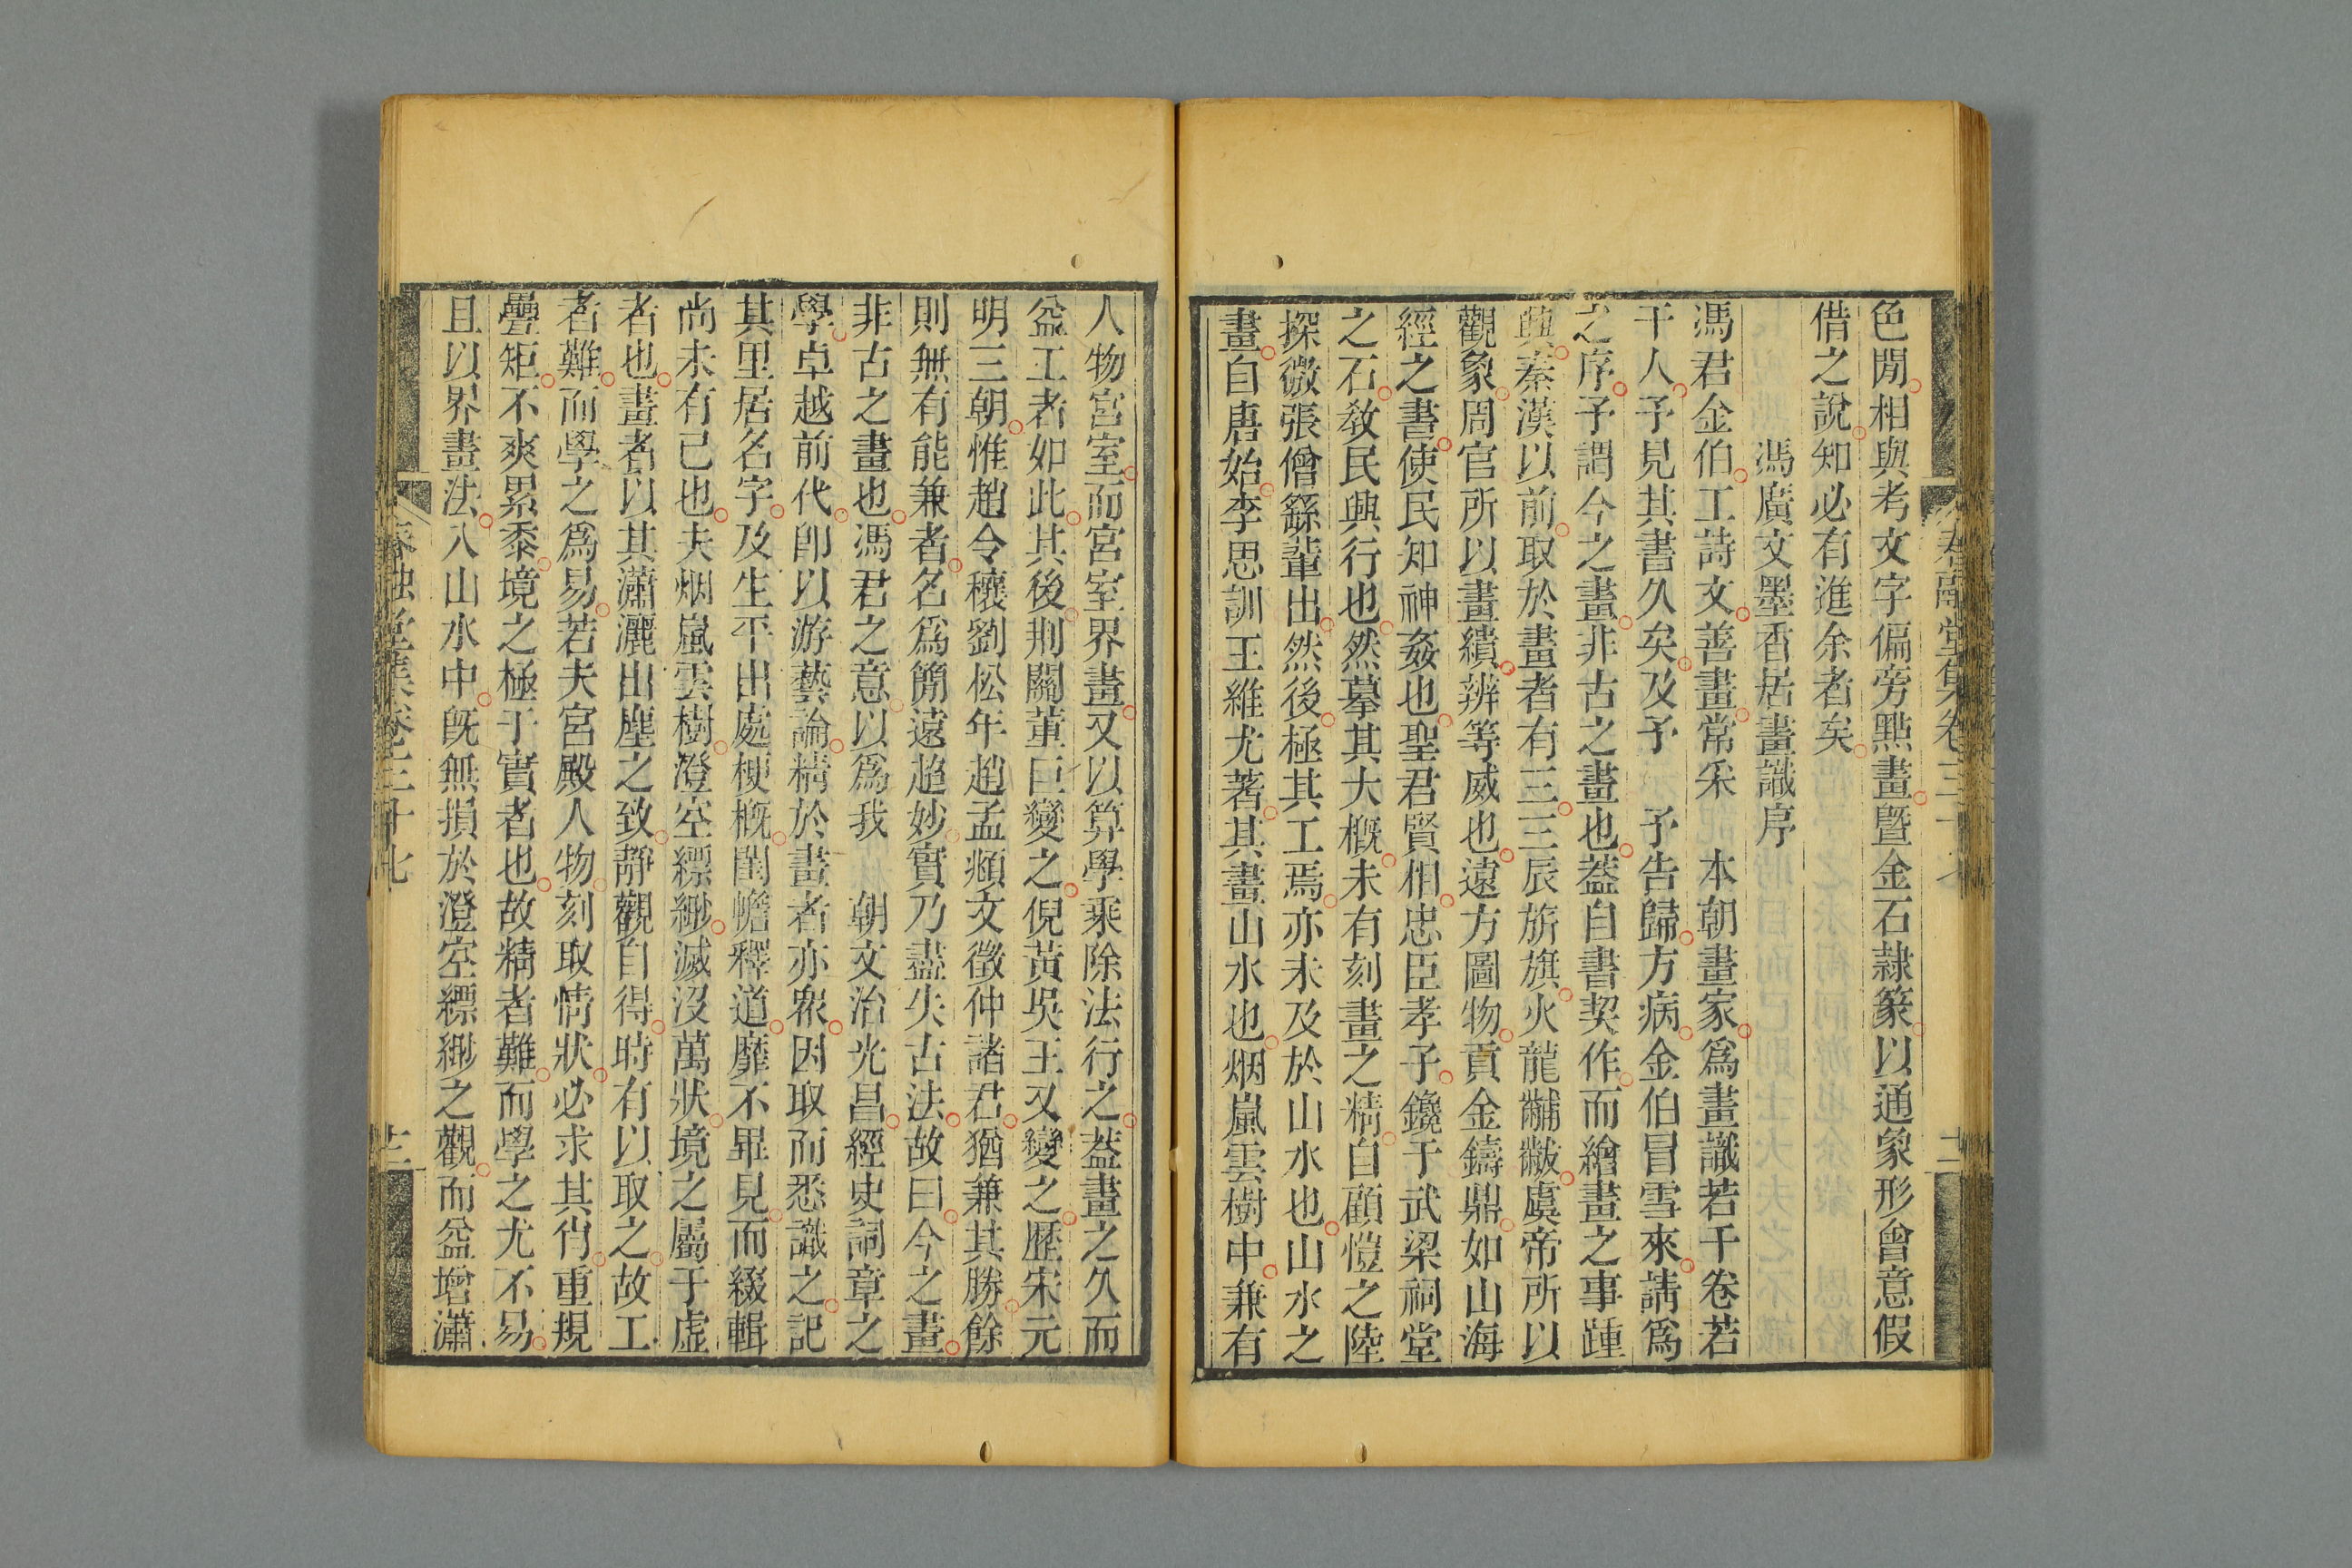 色閒相與考文字偏旁點畫暨金石隷篆以通象形會意假
借之說知必有進余者矣
馮廣文墨香居畫識序
馮君金伯工詩文善畫常采 本朝畫家爲畫識若干卷若
干人予見其書久矣及予 予告歸方病金伯冒雪來請爲
之序予謂今之畫非古之畫也葢自書契作而繪畫之事踵
興秦漢以前取於畫者有三三辰旂旗火龍黼黻虞帝所以
觀象周官所以畫繢辨等威也遠方圖物貢金鑄鼎如山海
經之書使民知神姦也聖君賢相忠臣孝子鑱于武梁祠堂
之石敎民興行也然摹其大槪未有刻畫之精自顧愷之陸
探微張僧繇輩出然後極其工焉亦未及於山水也山水之
畫自唐始李思訓王維尤著其畫山水也烟嵐雲樹中兼有
人物宮室而宮室界畫又以算學乘除法行之葢畫之久而
益工者如此其後荆關董巨變之倪黃吳王又變之歷宋元
明三朝惟趙令穰劉松年趙孟頫文徵仲諸君猶兼其勝餘
則無有能兼者名爲簡遠超妙實乃盡失古法故曰今之畫
非古之畫也馮君之意以爲我 朝文治光昌經史詞章之
學卓越前代卽以游藝論精於畫者亦衆因取而悉識之記
其里居名字及生平出處梗槪閨幨釋道靡不畢見而綴輯
尚未有已也夫烟嵐雲樹澄空縹緲滅沒萬狀境之屬于虛
者也畫者以其瀟灑出塵之致靜觀自得時有以取之故工
者難而學之爲易若夫宮殿人物刻取情狀必求其肖重規
疊矩不爽累黍境之極于實者也故精者難而學之尤不易
且以界畫法入山水中旣無損於澄空縹緲之觀而益增瀟
春融堂集卷三十七
十二